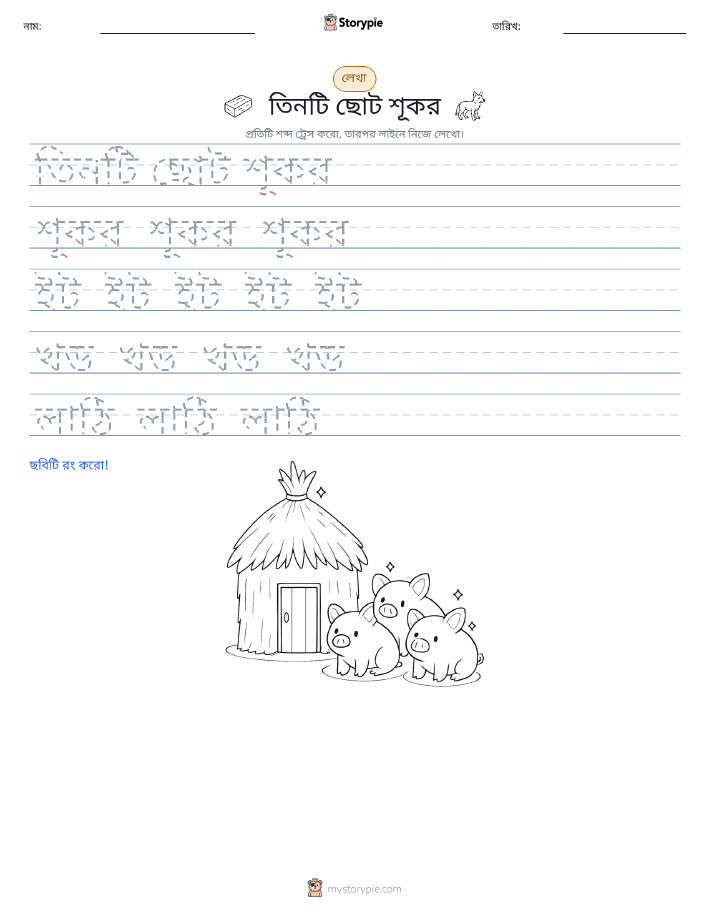 নাম:
Storypie
তারিখ:
লেখা
তিনটি ছোট শূকর
প্রতিটি শব্দ ট্রেস করো, তারপর লাইনে নিজে লেখো।
তিনটি ছোট শূকর
শূকর শূকর শূকর
ইট ইট ইট ইট ইট
খড় খড় খড় খড়
লাঠি লাঠি লাঠি
ছবিটি রং করো!
mystorypie.com